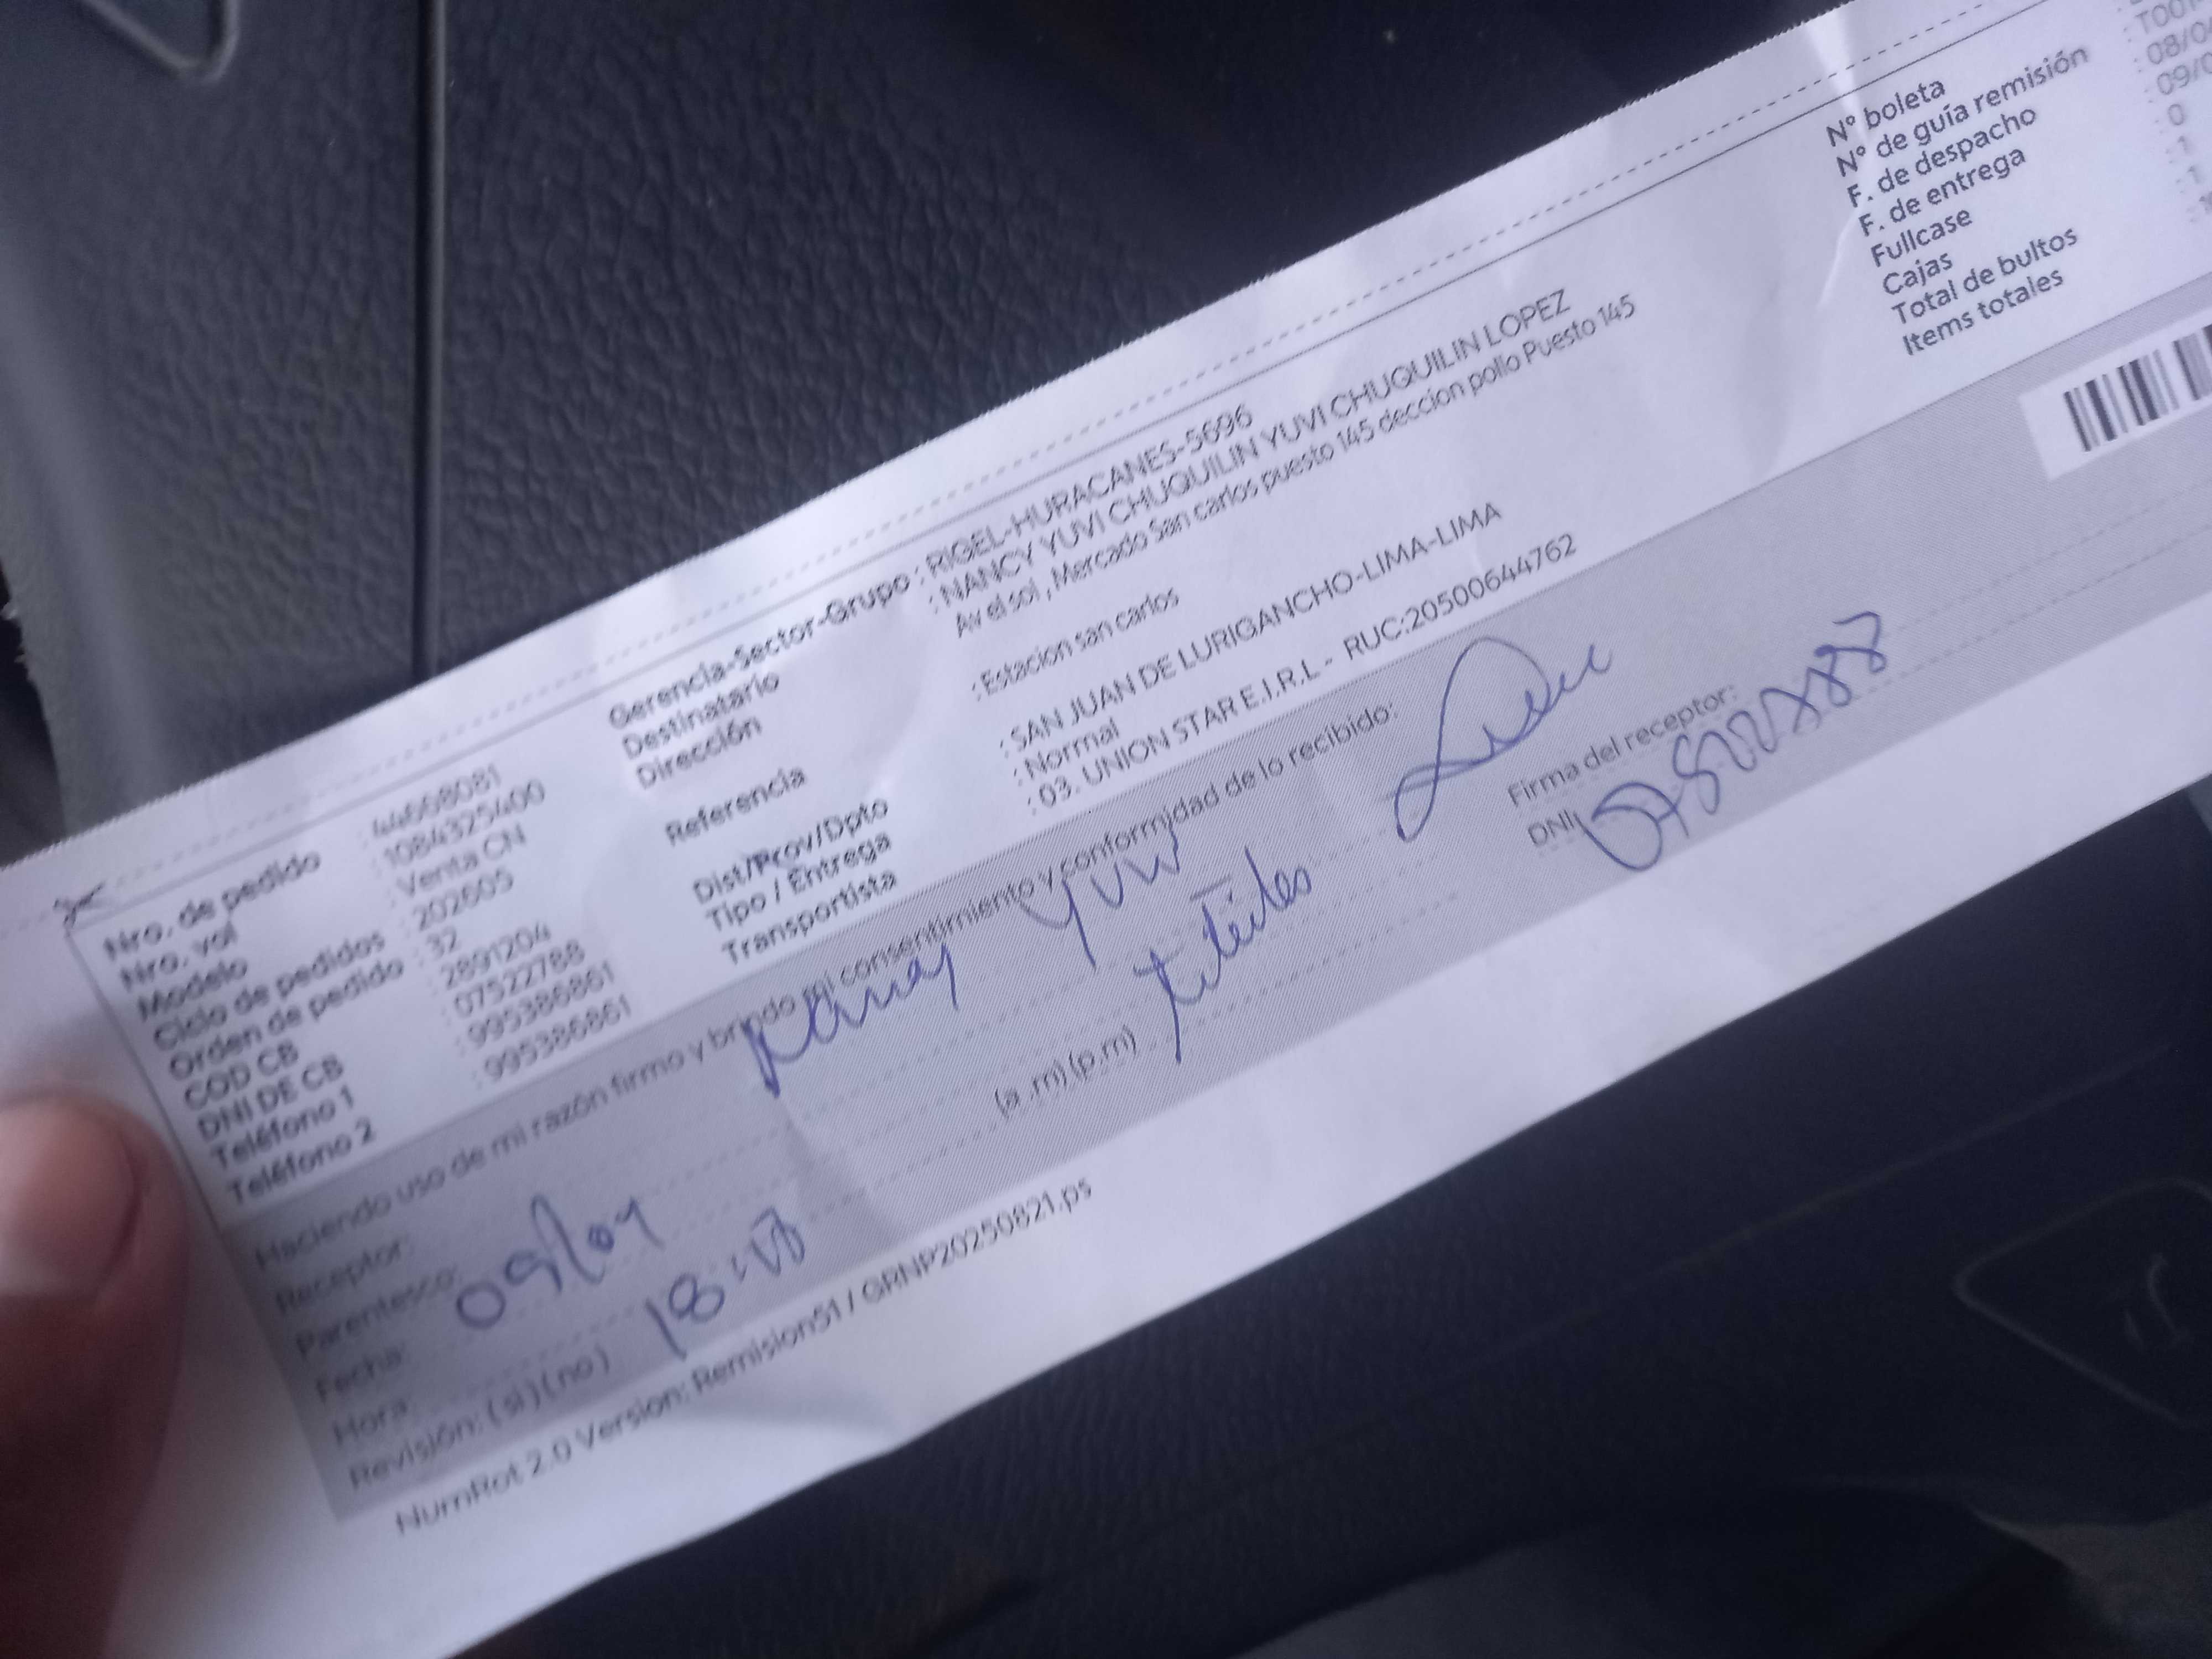 Nro. de pedido : 44668081
Nro. vol : 1084325400
Modelo : Venta CN
Ciclo de pedidos : 202605
Orden de pedido : 32
COD CB : 2891204
DNI DE CB : 07522788
Teléfono 1 : 995386861
Teléfono 2 : 995386861
Gerencia-Sector-Grupo : RIGEL-HURACANES-5696
Destinatario : NANCY YUVI CHUQUILIN YUVI CHUQUILIN LOPEZ
Dirección Av el sol , Mercado San carlos puesto 145 deccion pollo Puesto 145
Referencia : Estacion san carlos
Dist/Prov/Dpto : SAN JUAN DE LURIGANCHO-LIMA-LIMA
Tipo / Entrega : Normal
Transportista : 03. UNION STAR E.I.R.L - RUC:20500644762
N° boleta
N° de guía remisión : T001
F. de despacho : 08/0
F. de entrega : 09/0
Fullcase : 0
Cajas : 1
Total de bultos : 1
Items totales
Haciendo uso de mi razón firmo y brindo mi consentimiento y conformidad de lo recibido:
Receptor: Nancy Yuvi
Parentesco: titular
Fecha: 09/04
Hora: 18:00 (a .m) (p.m)
Revisión: (si) (no)
Firma del receptor:
DNI:
NumRot 2.0 Version: Remision51 / GRNP20250821.ps